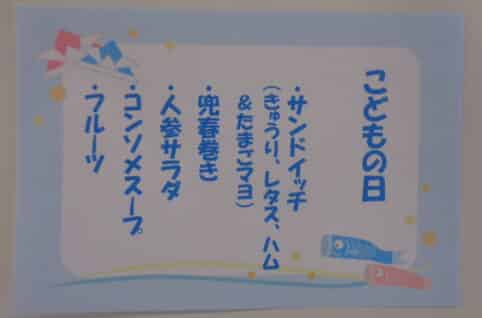 こどもの日
・サンドイッチ
（きゅうり、レタス、ハム
＆たまごマヨ）
・兜春巻き
・人参サラダ
・コンソメスープ
・フルーツ